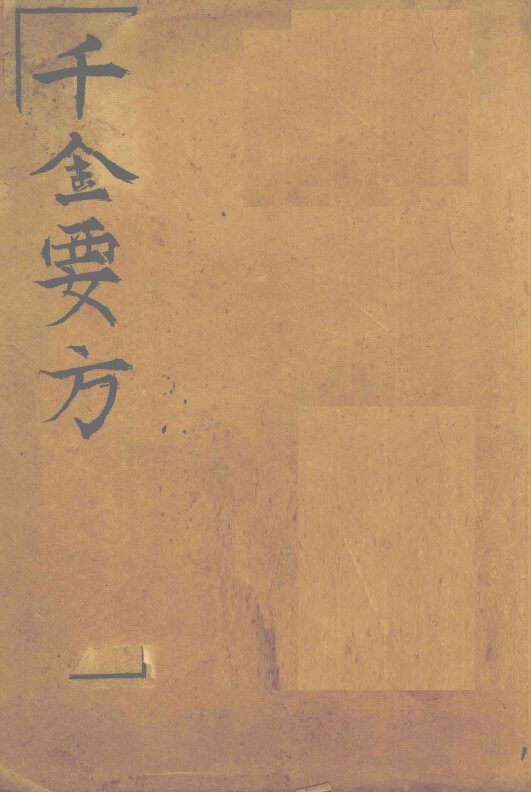 千金要方